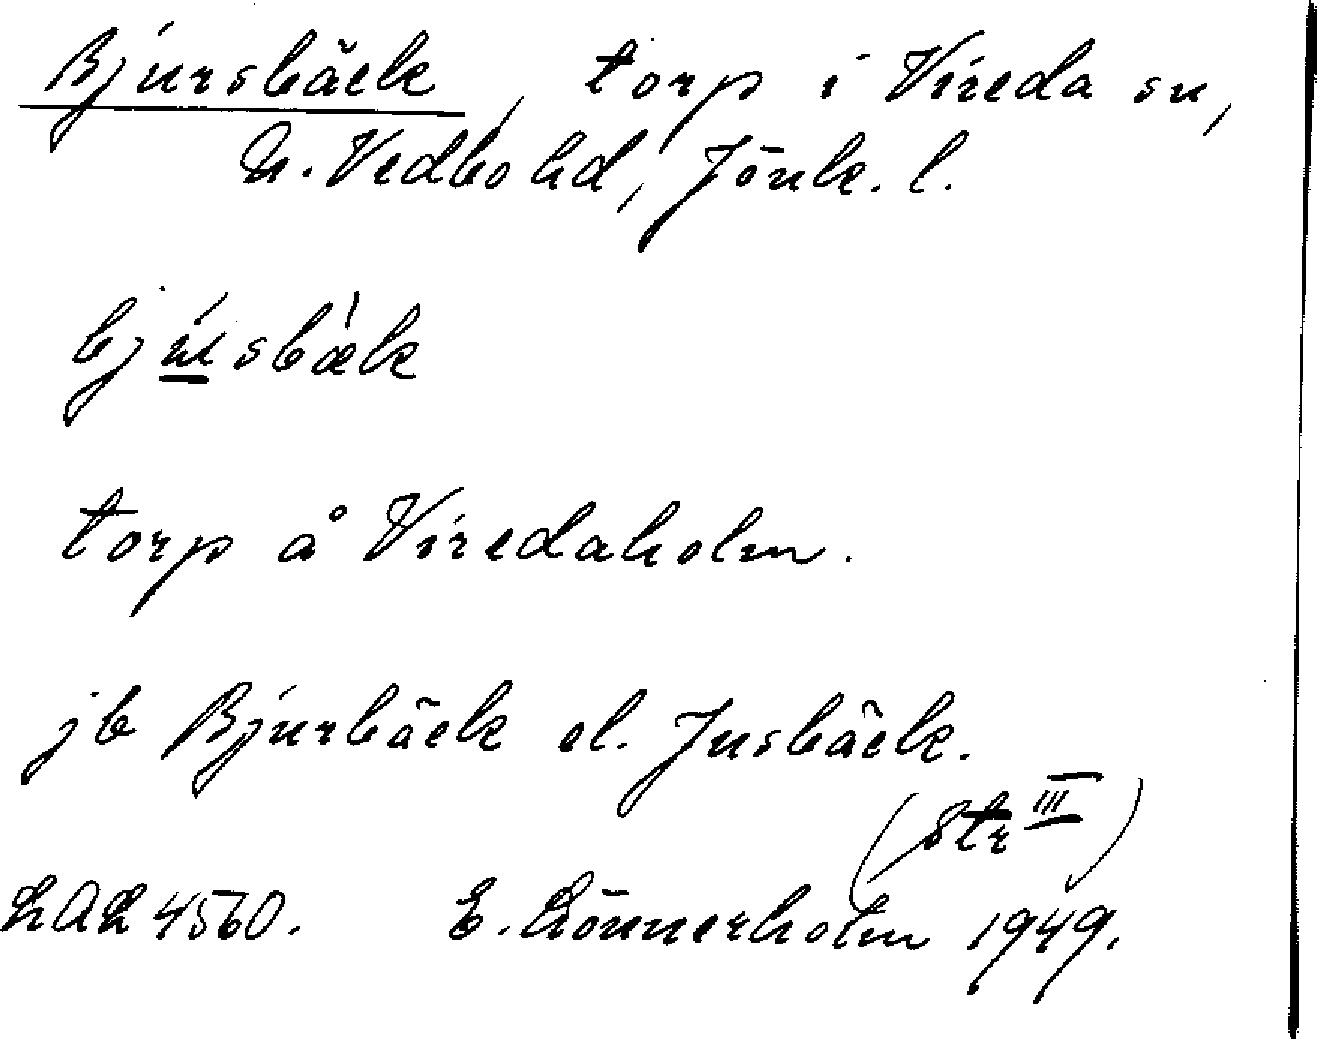 Bjursbäck, torp i Vireda sn,
N. Vedbo hd, Jönk. l.
bjúsbæ̀k
torp å Viredaholm.
jb Bjurbäck el. Jusbäck.
(str III)
LAL 4560. E. Lönnerholm 1949.